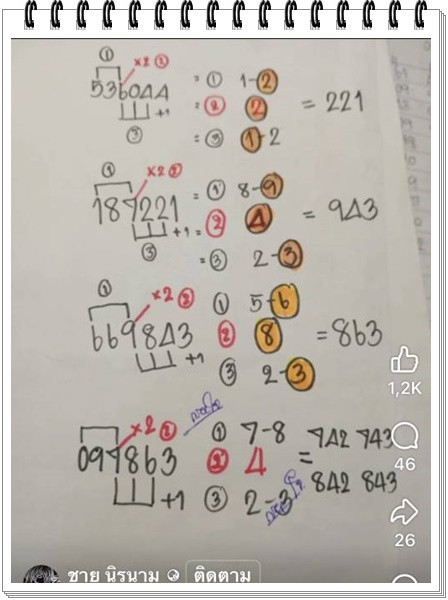 ① ×2②
536044 = ① 1-2
+1 = ② 2 = 221
③ = ③ 1-2
① ×2②
187221 = ① 8-9
+1 = ② 4 = 943
③ = ③ 2-3
① ×2②
669843 ① 5-6
+1 ② 8 = 863
③ 2-3
×2②
097863 ① 7-8 742 743
② 4 =
+1 ③ 2-3 842 843
1,2K
46
26
ชาย นิรนาม ติดตาม